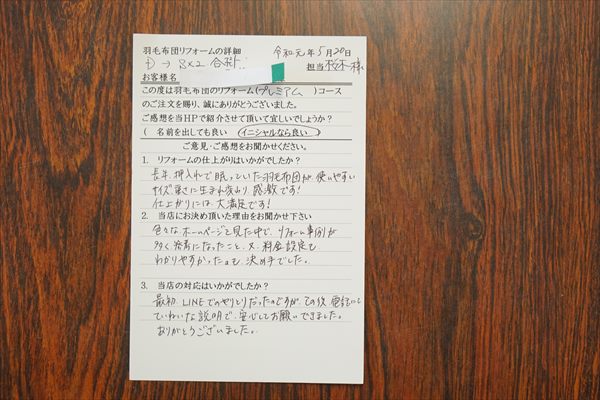 羽毛布団リフォームの詳細
令和元年5月20日
D → S×2
担当 様
お客様名
この度は羽毛布団のリフォーム(プレミアム)コース
のご注文を賜り、誠にありがとうございました。
ご感想を当HPで紹介させて頂いて宜しいでしょうか?
( 名前を出しても良い イニシャルなら良い )
ご意見・ご感想をお聞かせください。
1. リフォームの仕上がりはいかがでしたか?
長年、押入れで眠っていた羽毛布団が、使いやすい
サイズ、重さに生まれ変わり、感激です!
仕上がりには、大満足です!
2. 当店にお決め頂いた理由をお聞かせ下さい
色々なホームページを見た中で、リフォーム事例が
多く、参考になったこと、又、料金設定も
わかりやすかったのも、決め手でした。
3. 当店の対応はいかがでしたか?
最初、LINEでのやりとりだったのですが、その後、電話にて
ていねいな説明で、安心してお願いできました。
ありがとうございました。